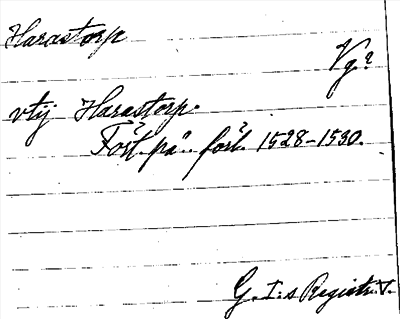 Harastorp
Vg?
vtij Harastorp.
Fört. på förl. 1528-1530.
G. I:s Registr. V.